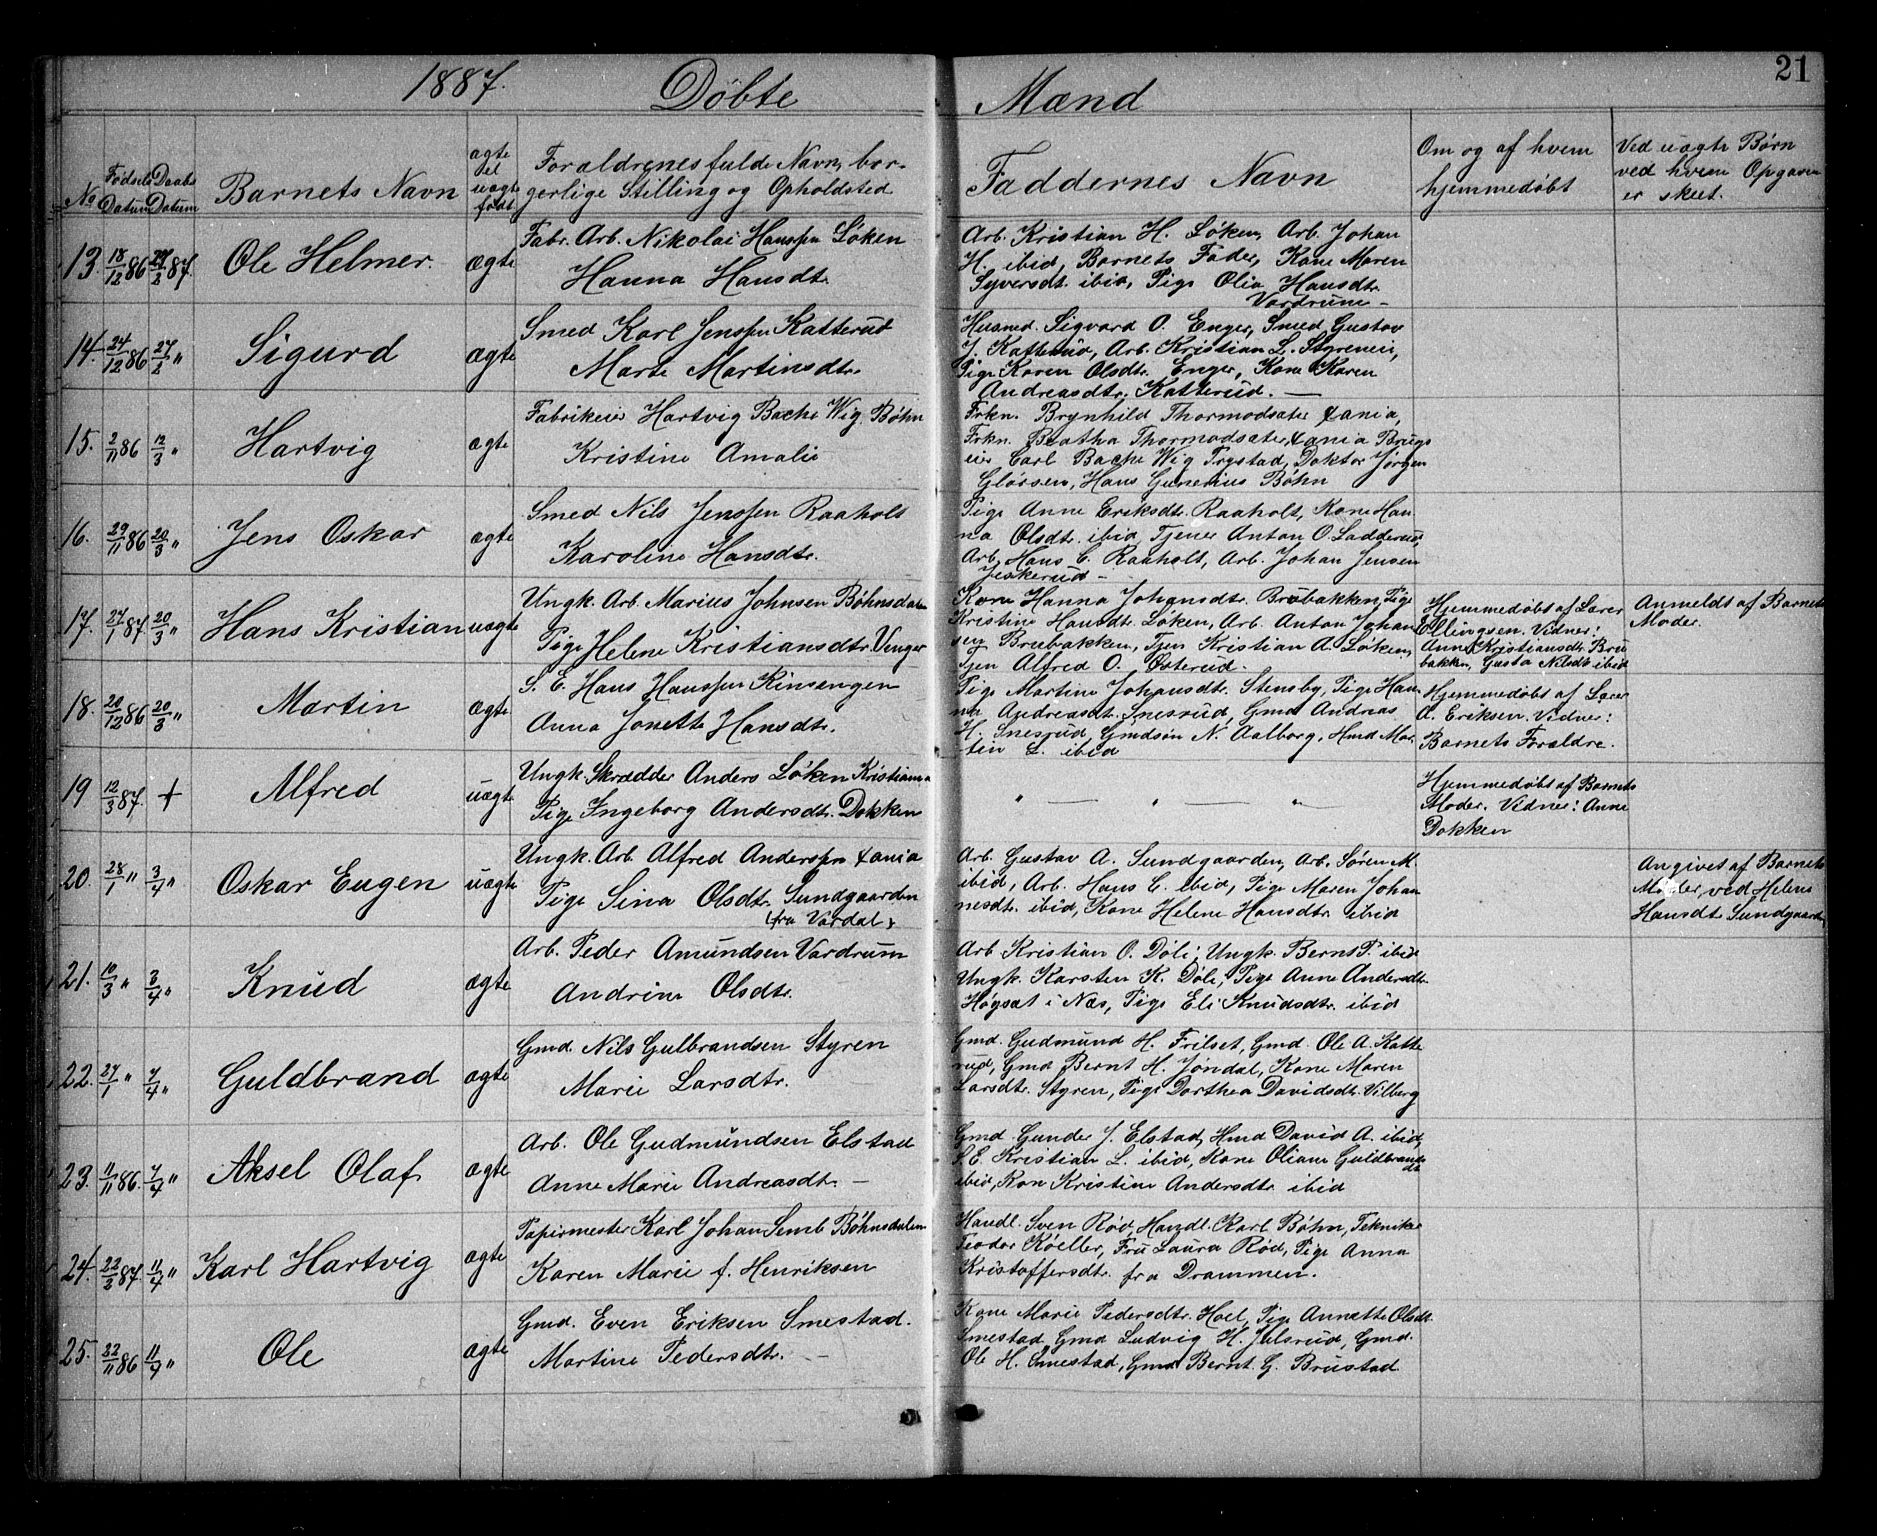 1887. Døbte Mænd 21
No Fødsels Datum Daabs Datum Barnets Navn ægte el uægte født Forældrenes fulde Navn, bor-
gerlige Stilling og Opholdsted Faddernes Navn Om og af hvem
hjemmedøbt Ved uægte Børn
ved hvem Opgaven
er skeet.
13. 18/12 86 27/2 87. Ole Helmer. ægte
Fabr. Arb. Nikolai Hanssen Løken
Hanna Hansdtr.
Arb. Kristian H. Løken, Arb. Johan
H. ibid, Barnets Fader, Kone Maren
Syversdt. ibid, Pige Olia Hansdtr.
Vardrum –
14. 24/12 86 27/2 " Sigurd ægte
Smed Karl Jenssen Katterud
Marte Martinsdtr.
Husmd. Sigvard O. Enger, Smed Gustav
J. Katterud, Arb. Kristian L. Styreneie,
Pige Karen Olsdtr. Enger, Kone Karen
Andreasdtr. Katterud. —
15. 2/11 86 12/3 " Hartvig ægte
Fabrikeier Hartvig Bache Wig. Bøhn
Kristine Amalie
Frkn. Brynhild Thormodsæter Xania,
Frkn. Beatha Thormodsæter, Xania Brugs
eier Carl Bache Wig Frystad, Doktor Jørgen
Glørsen, Hans Gunerius Bøhn
16. 29/11 86 20/3 " Jens Oskar ægte
Smed Nils Jenssen Raaholt
Karoline Hansdtr.
Pige Anne Eriksdt. Raaholt, Kone Han
na Olsdt. ibid, Tjener Anton O. Ladderud,
Arb. Hans C. Raaholt, Arb. Johan Jensen
Jeskerud –
17. 27/1 87. 20/3 " Hans Kristian uægte
Ungk. Arb. Marius Johnsen Bøhnsdalen
Pige Helene Kristiansdtr. Venger
Kone Hanna Johansdt. Brubakken, Pige
Kristine Hansdt. Løken, Arb. Anton Johan
sen Brubakken, Tjen Kristian A. Løken,
Tjen Alfred O. Østerud.
Hjemmedøbt af Lærer
Ellingsen. Vidner:
Anne Kristiansdt. Bru
bakken, Gusta Nilsdt ibid
Anmeldt af Barnets
Moder.
18. 20/12 86 20/3 " Martin ægte
S. E. Hans Hanssen Kinsengen
Anna Jonette Hansdtr.
Pige Martine Johansdt. Stensby, Pige Han
na Andreasdt. Snesrud, Gmd Andreas
H. Snesrud, Gmdsøn N. Aalborg, Hmd Mar
tin L. ibid
Hjemmedøbt af Lærer
A. Eriksen. Vidner:
Barnets Forældre.
19 12/3 87. + Alfred uægte
Ungk. Skrædder Anders Løken Kristiania
Pige Ingeborg Andersdtr. Dokken
" — " — "
Hjemmedøbt af Barnets
Moder. Vidner: Anne
Dokken
20. 28/1 " 3/4 " Oskar Eugen uægte
Ungk. Arb. Alfred Anderssen Xania
Pige Sina Olsdtr. Sundgaarden
(fra Vardal)
Arb. Gustav A. Sundgaarden, Arb. Søren M.
ibid, Arb. Hans C. ibid, Pige Maren Johan
nesdt. ibid, Kone Helene Hansdtr ibid
Angivet af Barnets
Moder, ved Helene
Hansdt Sundgaarden,
21. 10/3 " 3/4 " Knud ægte
Arb. Peder Amundsen Vardrum
Andrine Olsdtr.
Arb Kristian O. Døli, Ungk. Bernt P. ibid
Ungk. Karsten K. Døli, Pige Anne Andersdt.
Høgsæt i Næs, Pige Eli Knudsdtr. ibid
22. 27/1 " 7/4 " Guldbrand ægte
Gmd. Nils Gulbrandsen Styren
Marie Larsdtr.
Gmd. Gudmund H. Frilset, Gmd. Ole A. Katte
rud, Gmd Bernt H. Jøndal, Kone Maren
Larsdtr. Styren, Pige Dorthea Davidsdt. Vilberg
23. 11/11 86. 7/4 " Aksel Olaf ægte
Arb. Ole Gudmundsen Elstad
Anne Marie Andreasdt. –
Gmd. Gunder J. Elstad, Hmd David A. ibid,
S. E. Kristian L. ibid, Kone Oliane Guldbrands
dt. ibid, Kon Kristine Andersdtr ibid
24. 22/2 87. 11/4 " Karl Hartvig ægte
Papirmester Karl Johan Semb Bøhnsdalen
Karen Marie f. Henriksen
Handl. Sven Rød, Handl. Karl Bøhn, Tekniker
Teodor Køeller, Fru Laura Rød, Pige Anna
Kristoffersdtr. fra Drammen.
25. 22/11 86 11/4 " Ole ægte
Gmd. Even Eriksen Smestad.
Martine Pedersdtr. –
Kone Marie Pedersdtr. Hoel, Pige Annette Olsdt.
Smestad, Gmd Ludvig H. Julsrud, Gmd.
Ole H. Smestad, Gmd Bernt G. Brustad